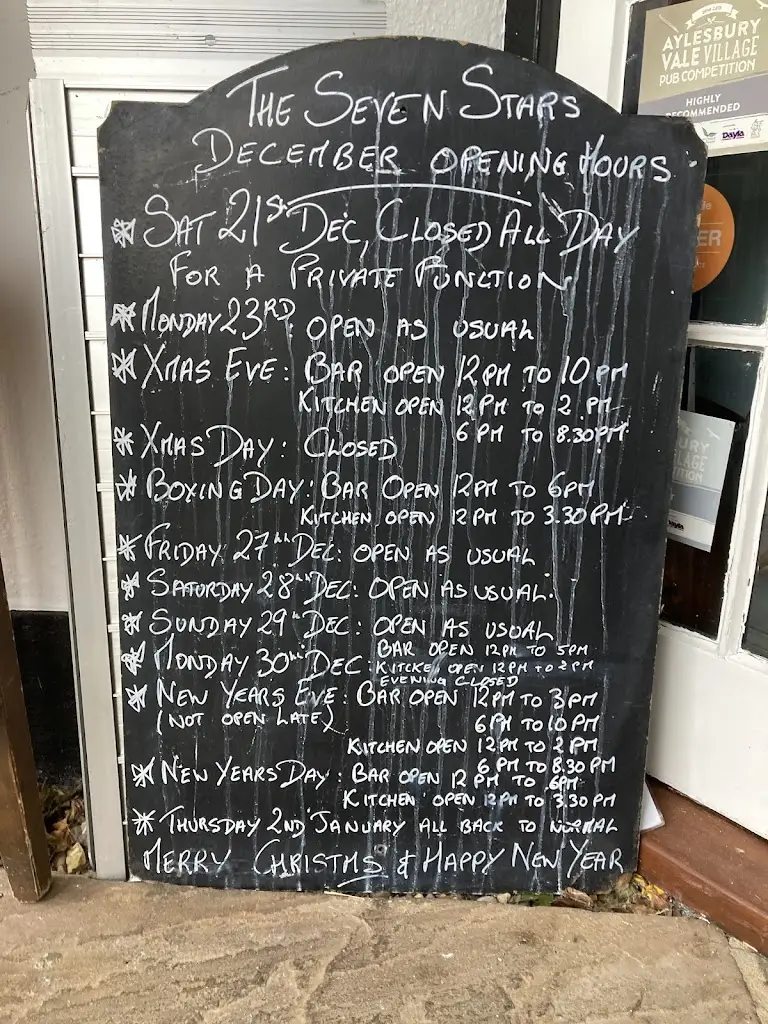 THE SEVEN STARS
DECEMBER OPENING HOURS
* SAT 21st DEC, CLOSED ALL DAY
FOR A PRIVATE FUNCTION
* MONDAY 23RD: OPEN AS USUAL
* XMAS EVE: BAR OPEN 12PM TO 10PM
KITCHEN OPEN 12PM TO 2PM
6PM TO 8.30PM
* XMAS DAY: CLOSED
* BOXING DAY: BAR OPEN 12PM TO 6PM
KITCHEN OPEN 12PM TO 3.30PM
* FRIDAY 27th DEC: OPEN AS USUAL
* SATURDAY 28th DEC: OPEN AS USUAL.
* SUNDAY 29th DEC: OPEN AS USUAL
* MONDAY 30th DEC: BAR OPEN 12PM TO 5PM
KITCKEN OPEN 12PM TO 2PM
EVENING CLOSED
* NEW YEARS EVE: BAR OPEN 12PM TO 3PM
(NOT OPEN LATE) 6PM TO 10PM
KITCHEN OPEN 12PM TO 2PM
6PM TO 8.30PM
* NEW YEARS DAY: BAR OPEN 12PM TO 6PM
KITCHEN OPEN 12PM TO 3.30PM
* THURSDAY 2ND JANUARY ALL BACK TO NORMAL
MERRY CHRISTMS & HAPPY NEW YEAR
AYLESBURY
VALE VILLAGE
PUB COMPETITION
HIGHLY
RECOMMENDED
Dayla
ER
URY
LAGE
TITION
Dayla